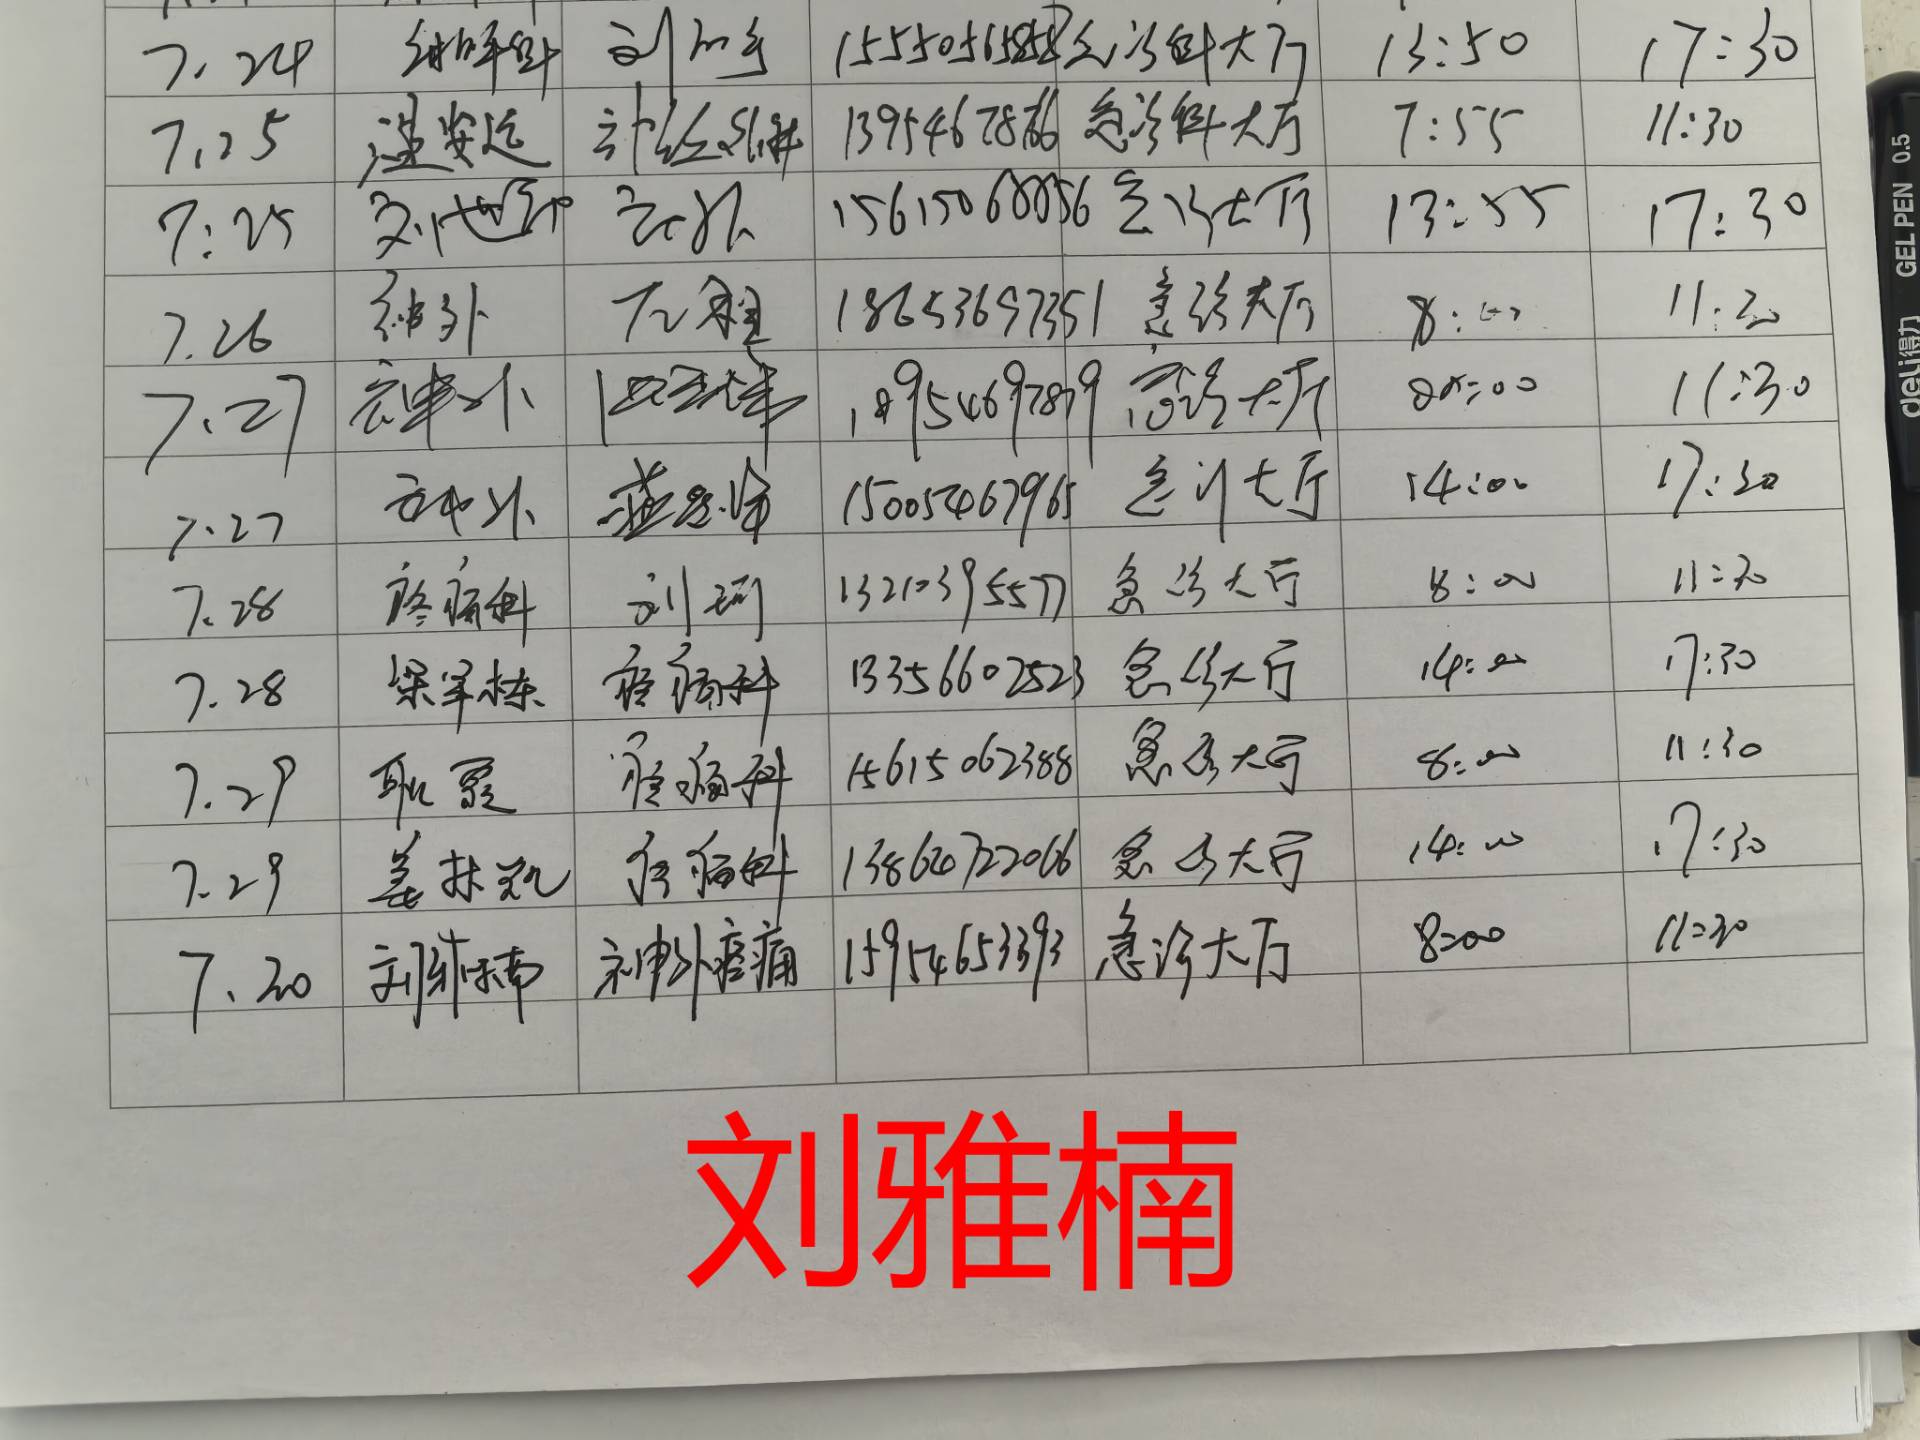 7.24 刘 15550565858 急诊科大厅 13:50 17:30
7.25 温安远 神经外科 13954678766 急诊科大厅 7:55 11:30
7:25 刘世 神外 急诊大厅 13:55 17:30
7.26 神外 18653697351 急诊大厅 8:00 11:30
7.27 神外 18954697879 急诊大厅 08:00 11:30
7.27 神外 15005467965 急诊大厅 14:00 17:30
7.28 疼痛科 刘珂 13210395577 急诊大厅 8:00 11:30
7.28 梁军栋 疼痛科 13356602523 急诊大厅 14:00 17:30
7.29 耿震 疼痛科 15615062388 急诊大厅 8:00 11:30
7.29 姜林凯 疼痛科 急诊大厅 14:00 17:30
7.30 刘雅楠 神外疼痛 15954653393 急诊大厅 8:00 11:30
刘雅楠
deli得力 GEL PEN 0.5